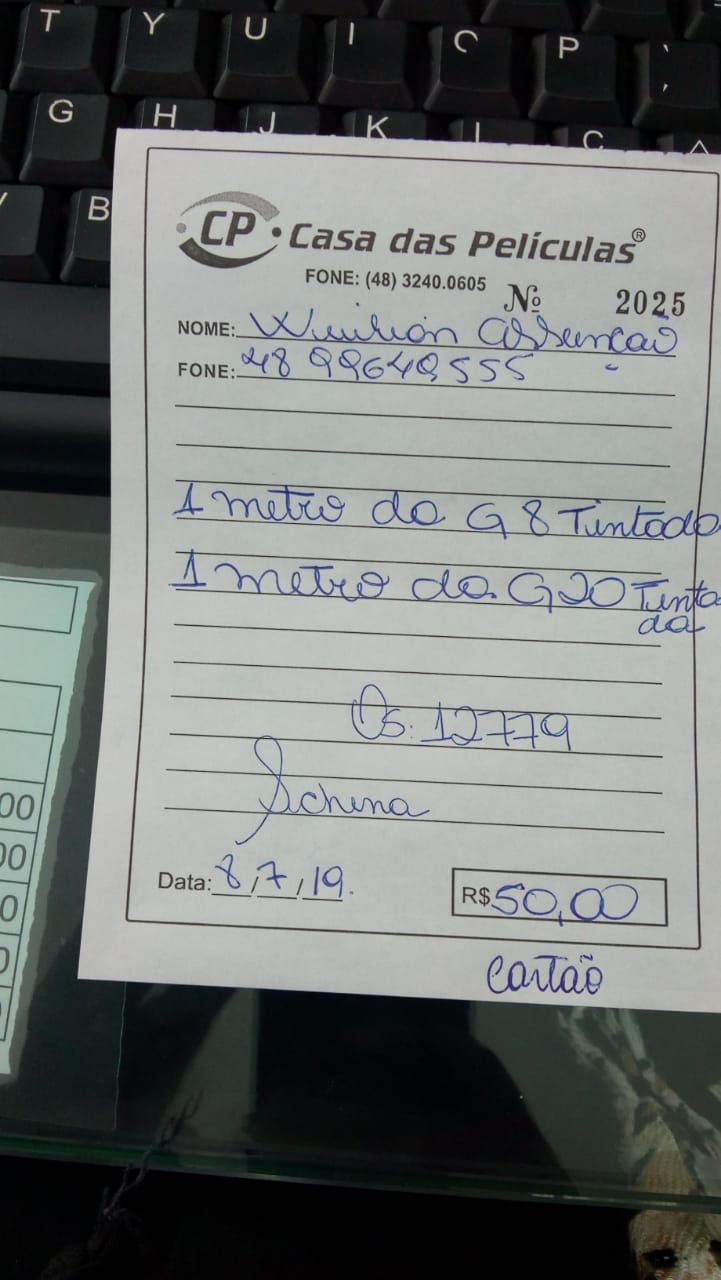 T Y U I O P
G H J K L Ç
B
CP Casa das Películas®
FONE: (48) 3240.0605
Nº 2025
NOME: Assunção
FONE: 48 99640555
1 metro do G 8 Tintado
1 metro do G20 Tinta
da
Os: 12779
Data: 8/7/19.
R$ 50,00
cartão
00
00
0